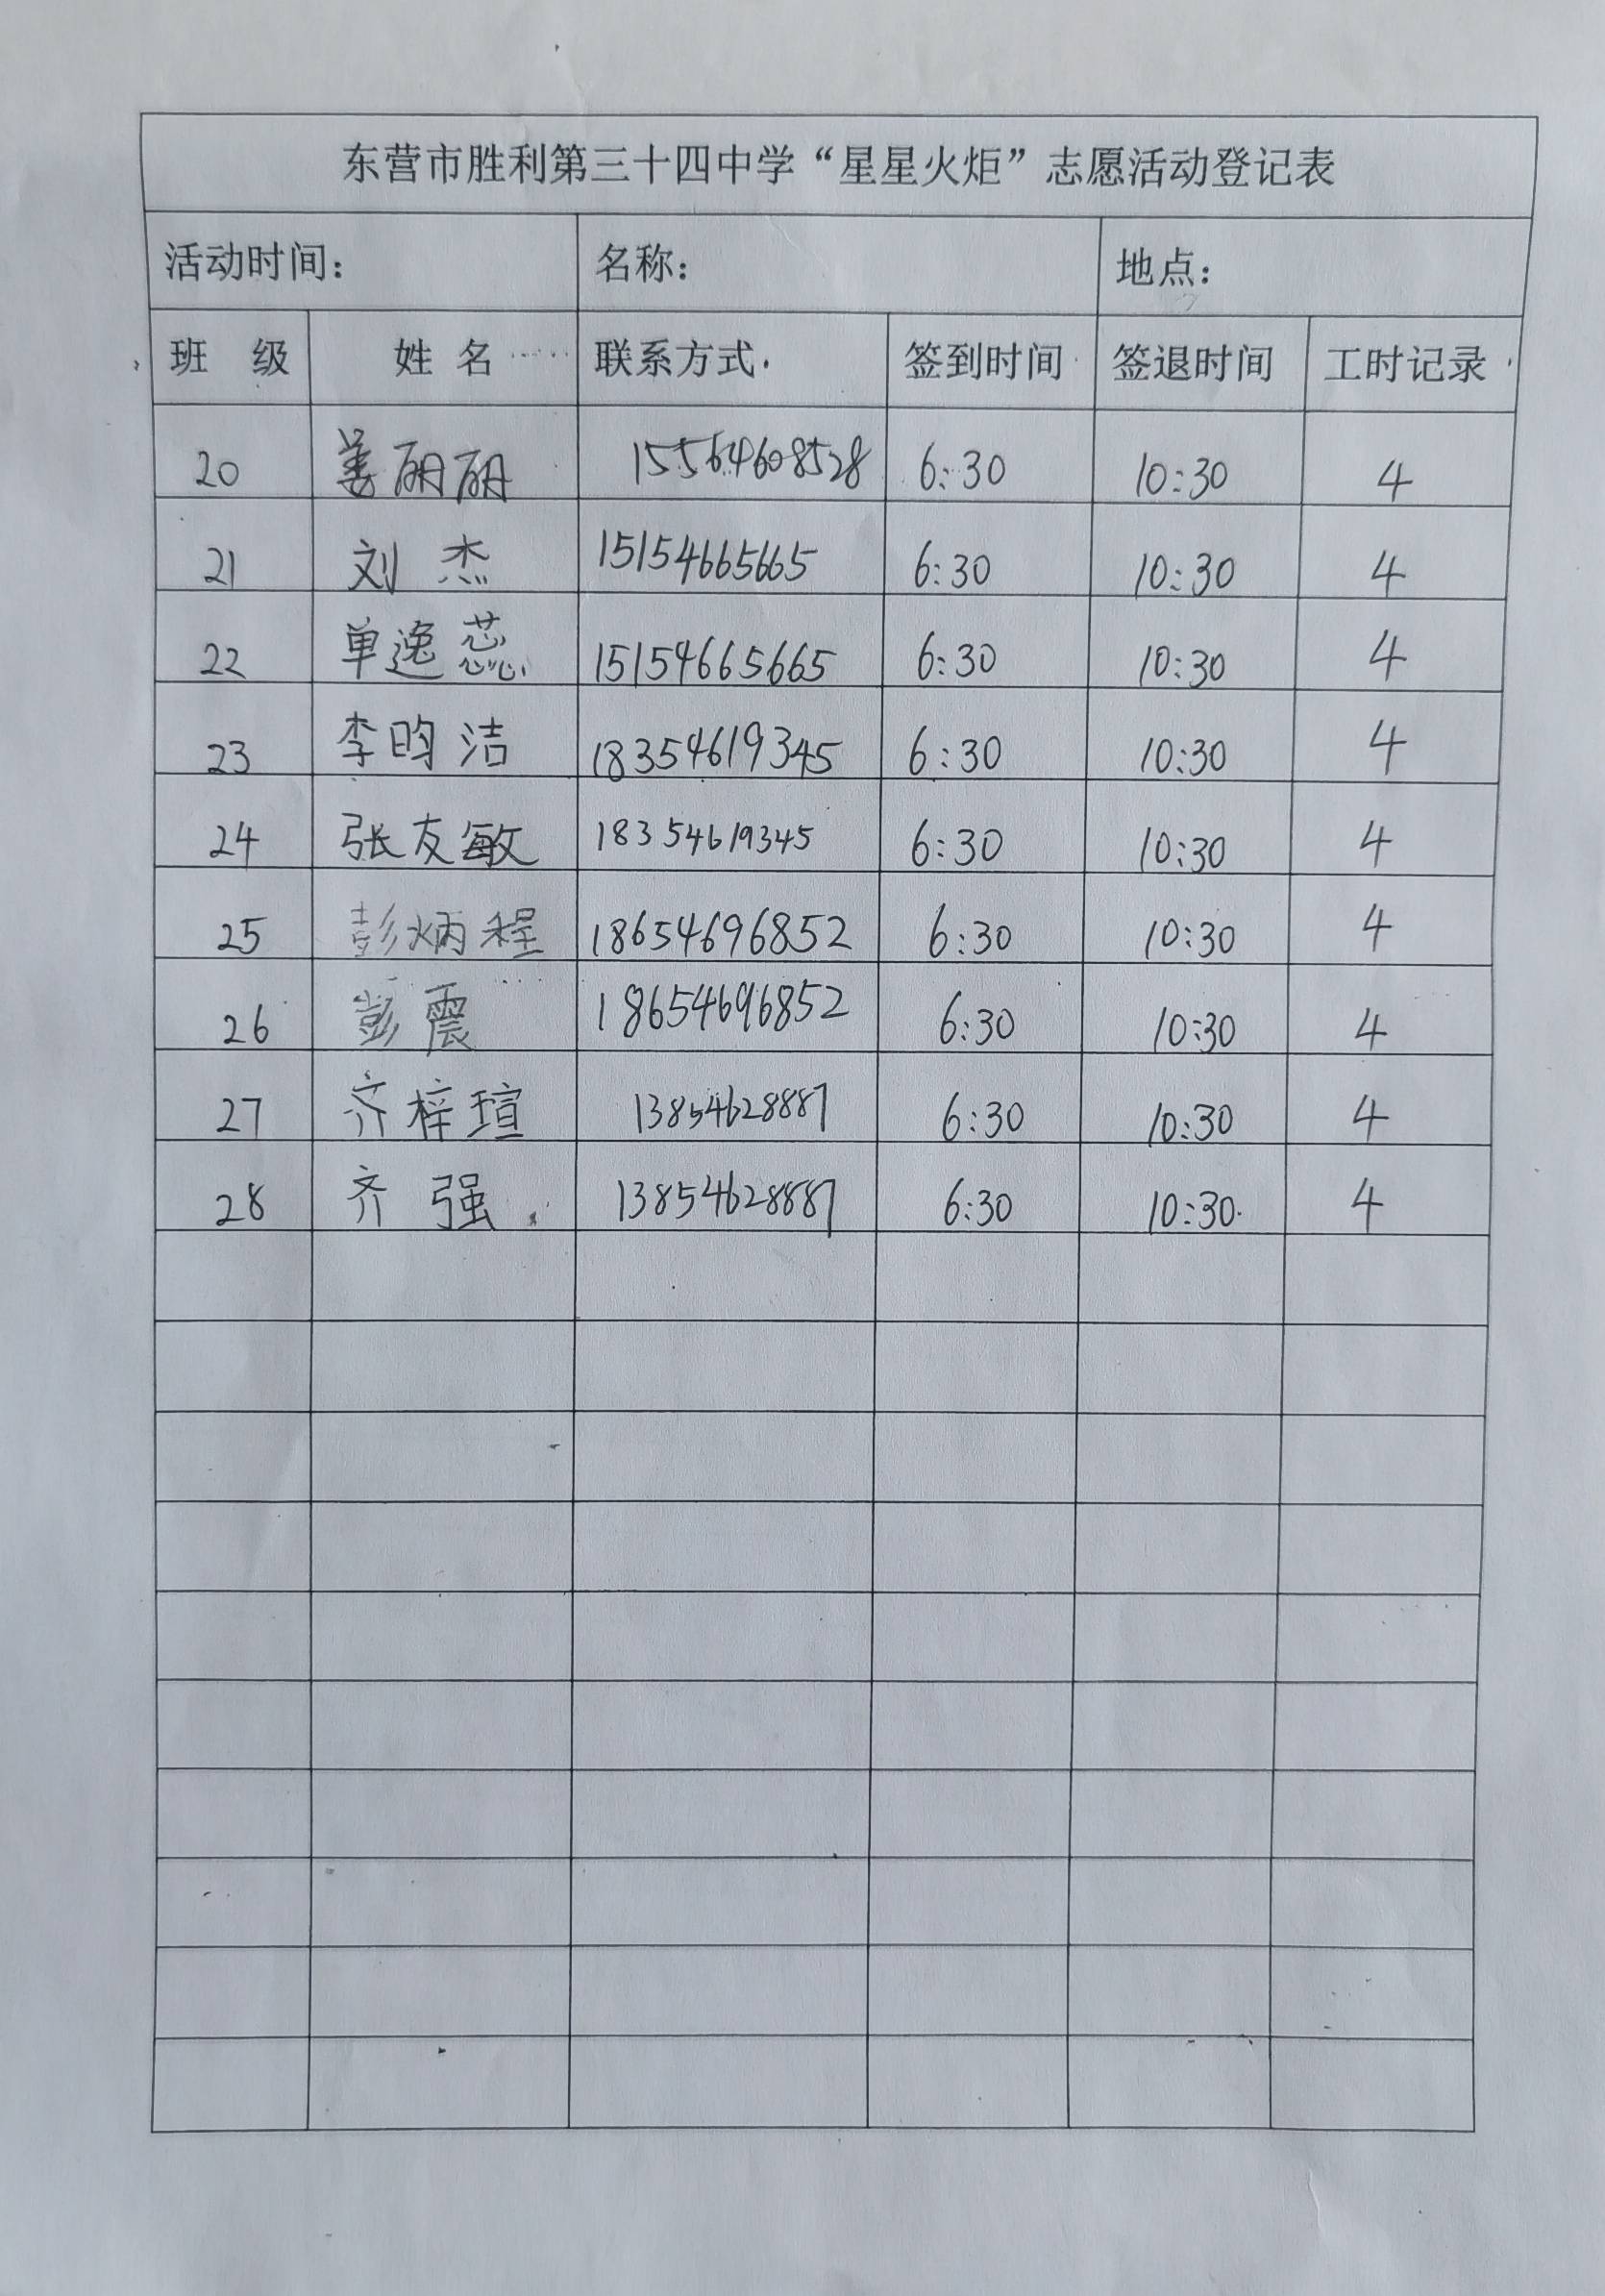 东营市胜利第三十四中学“星星火炬”志愿活动登记表
活动时间： 名称： 地点：
班 级 姓 名 联系方式 签到时间 签退时间 工时记录
20 姜丽丽 15564608528 6:30 10:30 4
21 刘杰 15154665665 6:30 10:30 4
22 单逸蕊 15154665665 6:30 10:30 4
23 李昀洁 18354619345 6:30 10:30 4
24 张友敏 18354619345 6:30 10:30 4
25 彭炳程 18654696852 6:30 10:30 4
26 彭震 18654696852 6:30 10:30 4
27 齐梓瑄 13854628887 6:30 10:30 4
28 齐强 13854628887 6:30 10:30 4